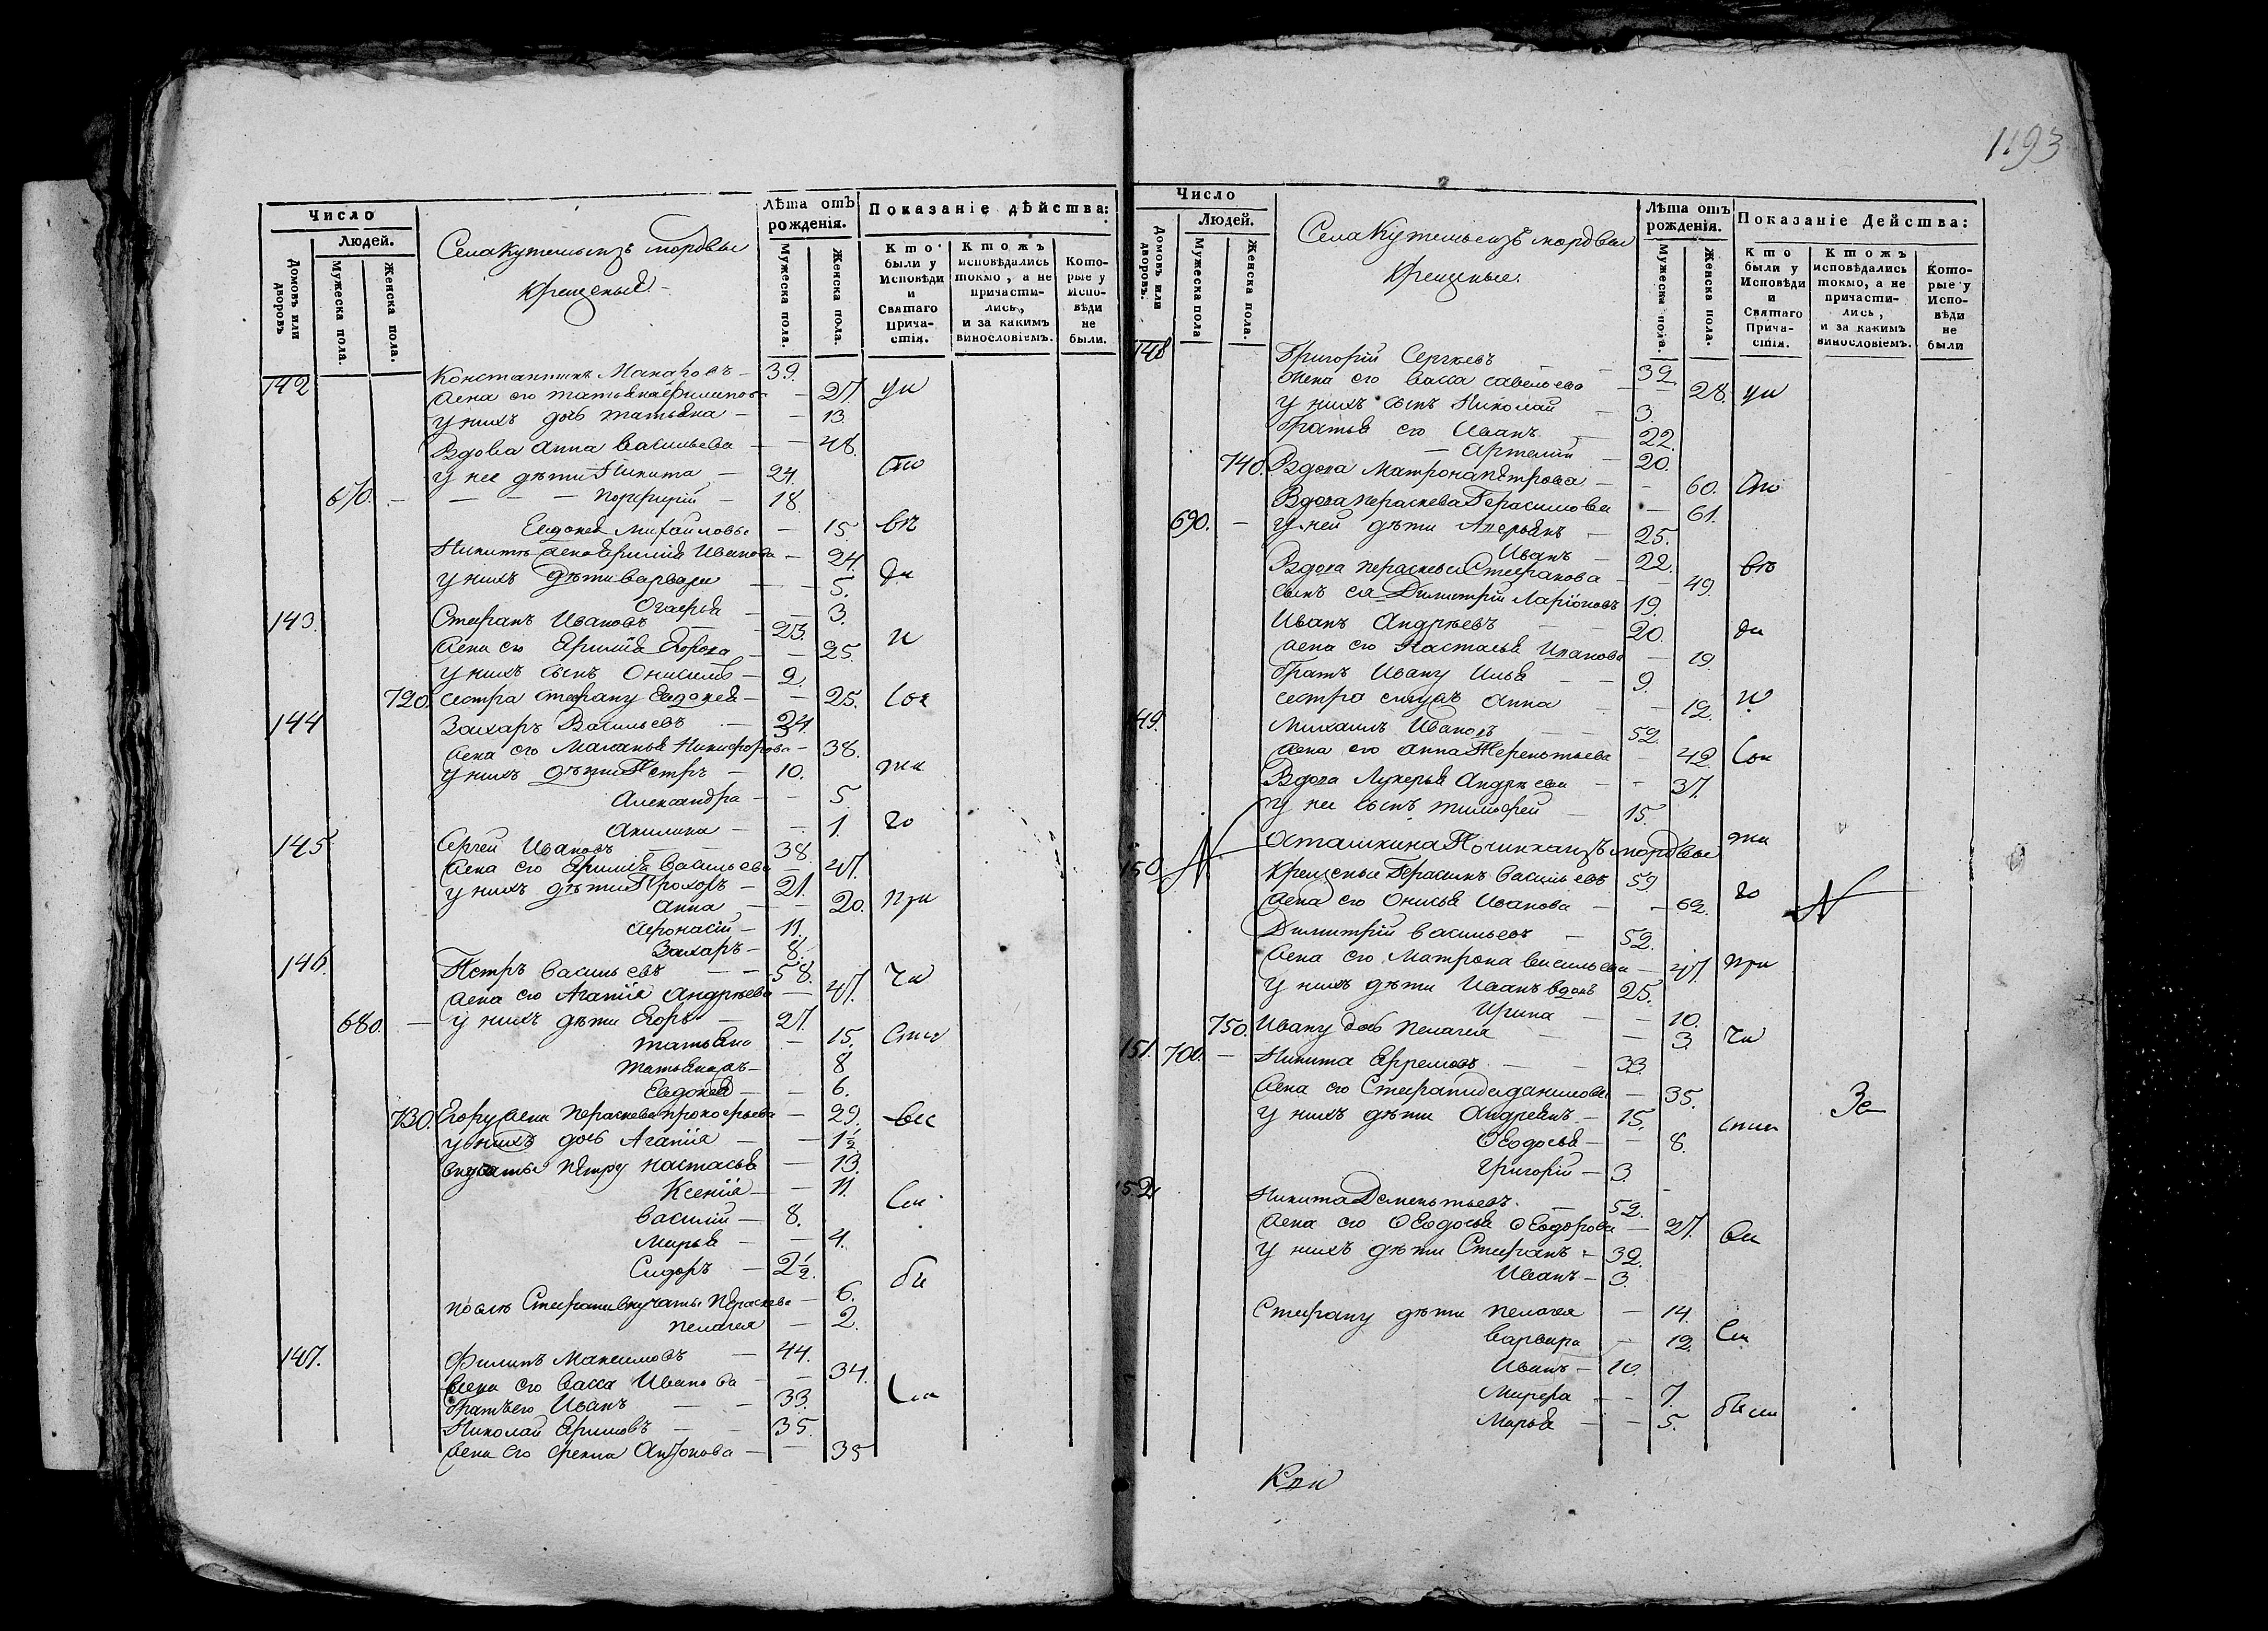 1193
Число
Людей.
Домовъ или дворовъ
Мужеска пола.
Женска пола.
Села Кутемы изъ мордвы
крещеные.
Лѣта отъ рождения.
Мужеска пола.
Женска пола.
Показаніе дѣйства:
Кто были у Исповѣди и Святаго Прича-стія.
Ктожъ исповѣдались токмо, а не причасти-лись, и за какимъ винословіемъ.
Кото-рые у Испо-вѣди не были.
142 Константинъ — 39.
жена его татьяна филипова — 27 ди
у нихъ дочь татьяна — — 13.
Вдова анна васильева — — 48.
у нее дѣти Никита — 24.
670. — — — — порфирій — 18.
Евдокея Михайлова — 15.
Никитѣ жена Ефимія Иванова — 24
у нихъ дѣти варвара — — 5.
— 3.
143. Стефанъ Ивановъ — 23.
жена его Ефимія Егорова — — 25.
у нихъ сынъ Онисимъ — 2.
720. сестра стефану Евдокея — — 25.
144 Захаръ Васильевъ — 34
жена его Маланья Никифорова — 38.
у нихъ дѣти Петръ — 10.
Александра — — 5
Акилина — — 1.
145. Сергей Ивановъ — 38.
жена его Ефимія васильева — 47.
у нихъ дѣти Прохоръ — 21.
Анна — — 20. при
Афонасій — 11.
Захаръ — 8.
146. Петръ васильевъ — — 58.
жена его Агапія андрѣева — 47.
680. — у нихъ дѣти Егоръ — 27.
татьяна — 15.
татьяна — 8
Евдокея — — 6.
730. Егору жена Параскева прокофьева — 29.
у нихъ дочь Агапія — — 1½
внучаты петру настасья — 13.
Ксенія — — 11.
василій — 8.
Марья — — 4.
Сидоръ — 2½.
Стефана внучаты Параскева — 6.
пелагея — 2.
147. Филипъ Максимовъ — 44.
жена его васса Иванова — 34.
братъ его Иванъ — — 33.
Николай Ефимовъ — — 35.
жена его фекла Антонова — — 35
Число
Людей.
Домовъ или дворовъ.
Мужеска пола
Женска пола.
Села Кутемы изъ мордвы
крещеные.
Лѣта отъ рождения.
Мужеска пола.
Женска пола.
Показаніе Дейсшва:
Кто были у Исповѣди и Святаго Прича-стія.
Ктожъ исповѣдались токмо, а не причасти-лись, и за какимъ винословіемъ.
Кото-рые у Испо-вѣди не были
148 Григорій Сергѣевъ — 32.
жена его васса савельева — 28.
у нихъ сынъ Николай — 3.
братья его Иванъ — 22.
— Артемій — 20.
740. Вдова Матрона петрова — — 60.
Вдова параскева Герасимова — 61.
690. — у ней дѣти Аверьянъ — 25.
Иванъ — 22.
Вдова параскева Стефанова — — 49.
сынъ ея Димитрій Ларіоновъ 19.
Иванъ Андрѣевъ — — 20.
жена его Настасья Иванова — 19.
братъ Ивану Илья — — 9.
сестра Анна — — 12.
149. Михаилъ Ивановъ — 52.
жена его анна Терентьева — 42
Вдова Лукерья Андрѣева — — 37.
у нее сынъ тимофей — 15.
Осташкина Починка изъ мордвы
150 крещеные Герасимъ васильевъ 59
жена его Онисья Иванова — — 62.
Димитрій васильевъ — 52.
жена его Матрона васильева — 47. при
у нихъ дѣти Иванъ вдовъ 25.
Ирина — — 10.
750. Ивану дочь пелагея — — 3.
151. 700. — Никита Ефремовъ — — 33.
жена его Стефанида данилова — 35.
у нихъ дѣти Андреянъ — 15.
Феодосья — — 8.
григорій — 3.
152. Никита Дементьевъ. — 52.
жена его Феодосья Феодорова — 27.
у нихъ дѣти Стефанъ — 32.
Иванъ — 3.
Стефану дѣти пелагея — 14.
варвара — 12.
Иванъ — 10.
Марфа — — 7.
Марья — — 5.